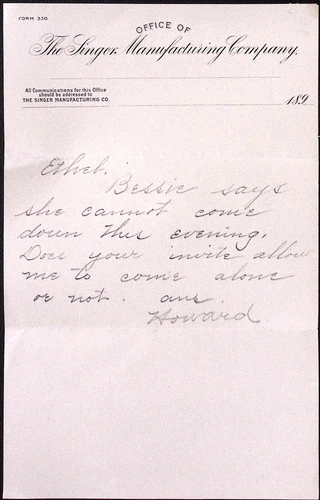 FORM 330
OFFICE OF
The Singer Manufacturing Company.
All Communications for this Office
should be addressed to
THE SINGER MANUFACTURING CO.
189
Ethel.
Bessie says
she cannot come
down this evening.
Does your invite allow
me to come alone
or not. ans.
Howard